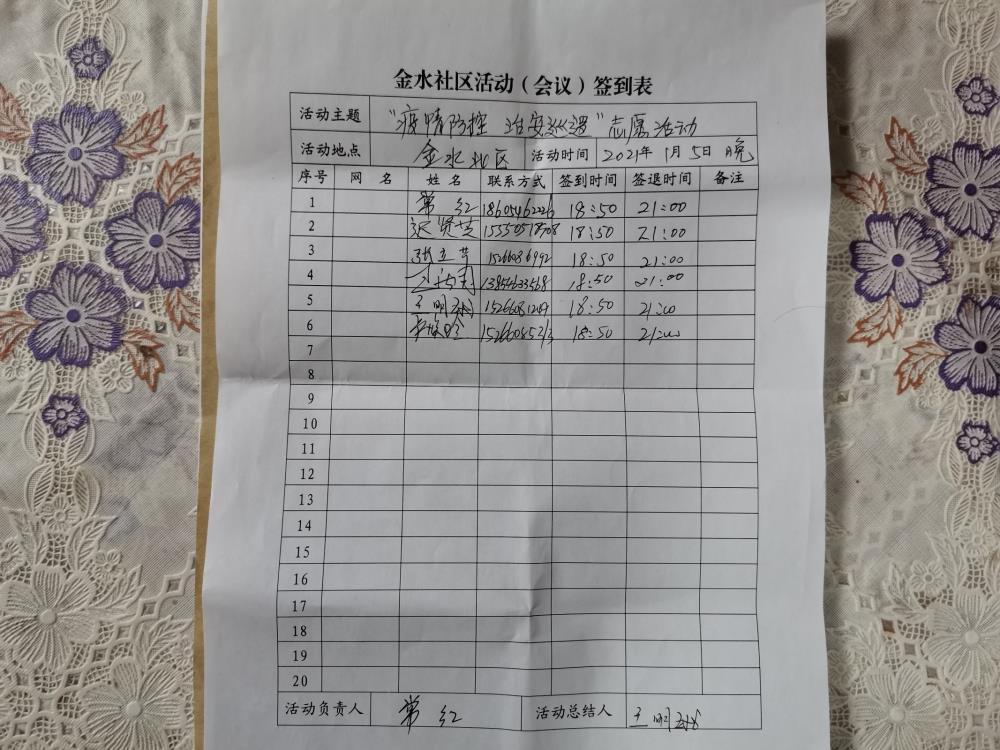 金水社区活动（会议）签到表
活动主题 “疫情防控 治安巡逻”志愿活动
活动地点 金水北区 活动时间 2021年1月5日晚
序号 网名 姓名 联系方式 签到时间 签退时间 备注
1 常红 18605462226 18:50 21:00
2 18:50 21:00
3 张立芹 15266086992 18:50 21:00
4 18:50 21:00
5 王明 18:50 21:00
6 18:50 21:00
7
8
9
10
11
12
13
14
15
16
17
18
19
20
活动负责人 常红 活动总结人 王明